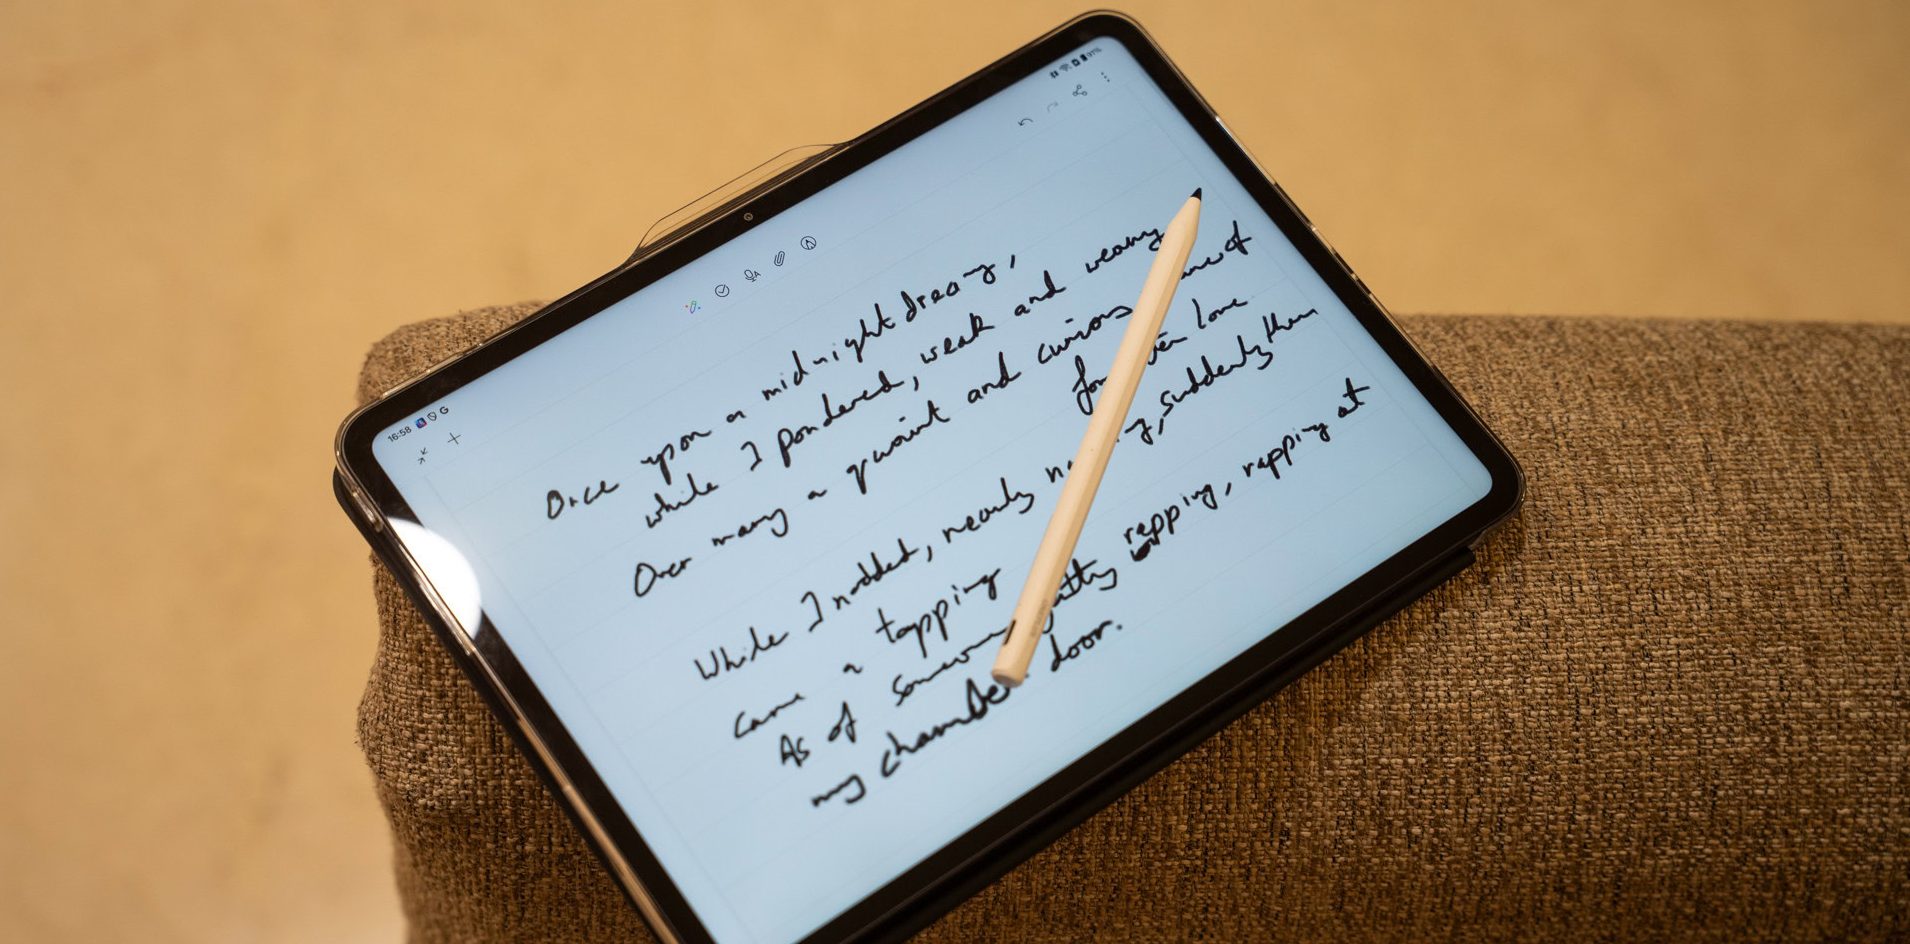 16:58
91%
Once upon a midnight dreary,
while I pondered, weak and weary
Over many a quaint and curious
forgotten lore
While I nodded, nearly suddenly then
came a tapping
As of rapping, rapping at
my chamber door.